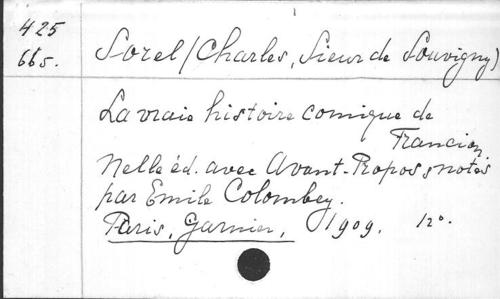 425
665.
Sorel (Charles, Sieur de Souvigny)
La vraie histoire comique de
Francion,
Nelle éd. avec Avant-Propos, notes
par Emile Colombey.
Paris, Garnier, 1909. 12°.